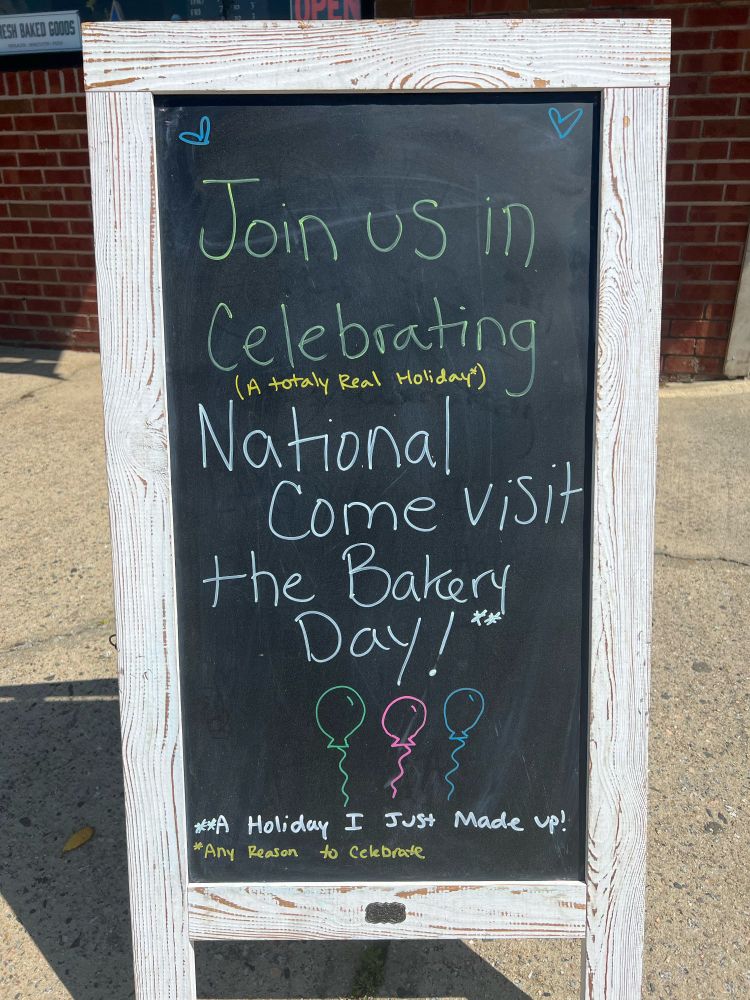 ESH BAKED GOODS
OPEN
Join us in
Celebrating
(A totaly Real Holiday*)
National
Come visit
the Bakery
Day!**
**A Holiday I Just Made up!
*Any Reason to Celebrate